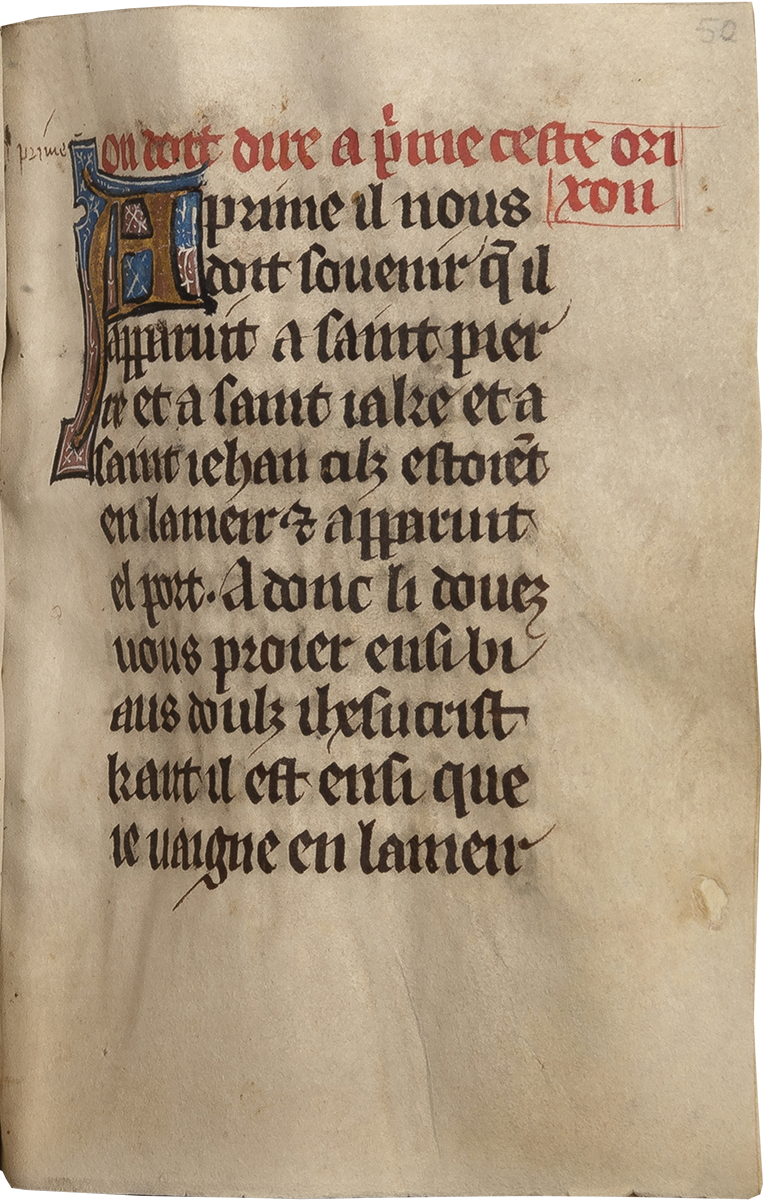 50
prime
on doit dire a p̾me ceste ori
xon
A prime il nous
doit souenir q̃ il
apparuit a saint pier
re et a saint iake et a
saint iehan cilz estoiẽt
en lameir ⁊ apparuit
el port. A donc li douez
uous proier ensi bi
aus doulz ihesucrist
kant il est ensi que
ie uaigne en lameir